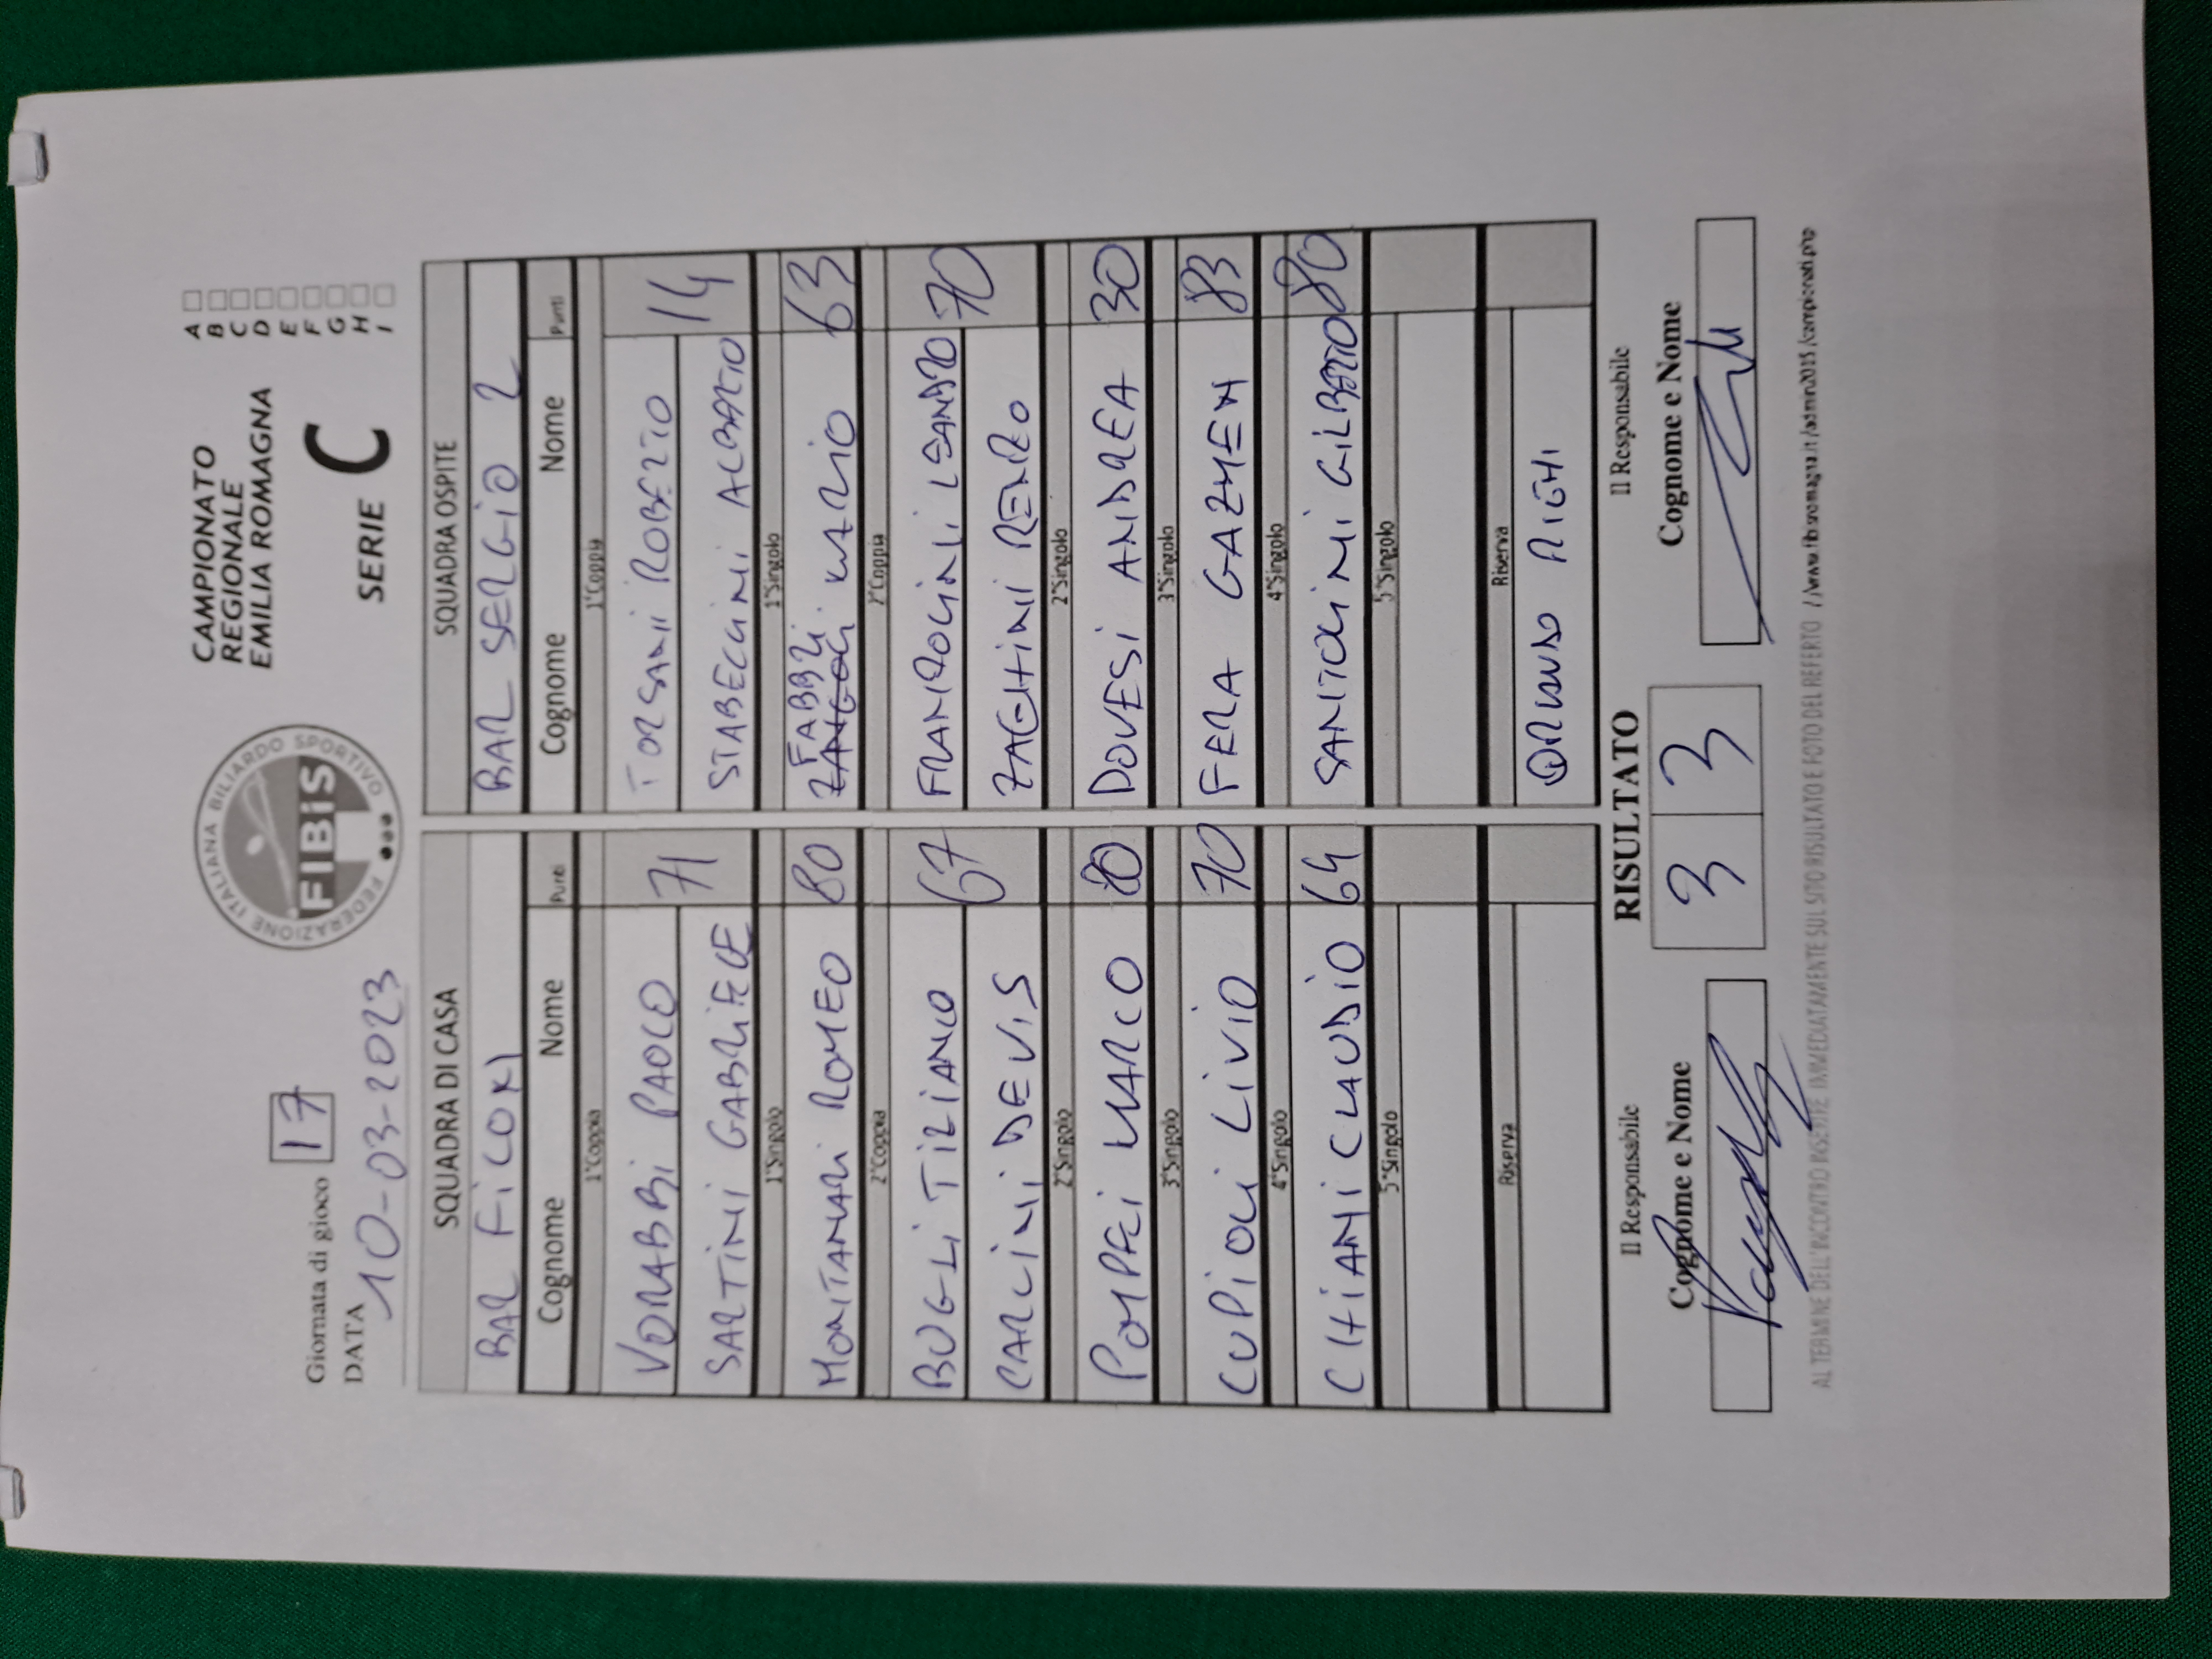 Giornata di gioco 17
DATA 10-03-2023
FEDERAZIONE ITALIANA BILIARDO SPORTIVO
FIBiS
CAMPIONATO
REGIONALE
EMILIA ROMAGNA
SERIE C
A
B
C
D
E
F
G
H
I
SQUADRA DI CASA SQUADRA OSPITE
BAR FICONI BAR SERGIO 2
Cognome Nome Punti Cognome Nome Punti
1°Coppia 1°Coppia
VORABBI PAOLO 71 TORSANI ROBERTO 14
SARTINI GABRIELE STABELLINI ALBERTO
1°Singolo 1°Singolo
MONTANARI ROMEO 80 FABBRI MARIO 63
2°Coppia 2°Coppia
BUGLI TIZIANO 67 70
CARLINI DEVIS ZAGHINI RENZO
2°Singolo 2°Singolo
POMPEI MARCO 80 DOVESI ANDREA 30
3°Singolo 3°Singolo
CUPIOLI LIVIO 70 FERA GAZMEN 83
4°Singolo 4°Singolo
CHIANI CLAUDIO 64 SANTOLINI GILBERTO 80
5°Singolo 5°Singolo
Riserva Riserva
RIGHI
Il Responsabile RISULTATO Il Responsabile
Cognome e Nome 3 3 Cognome e Nome
AL TERMINE DELL'INCONTRO INSERITE IMMEDIATAMENTE SUL SITO RISULTATO E FOTO DEL REFERTO